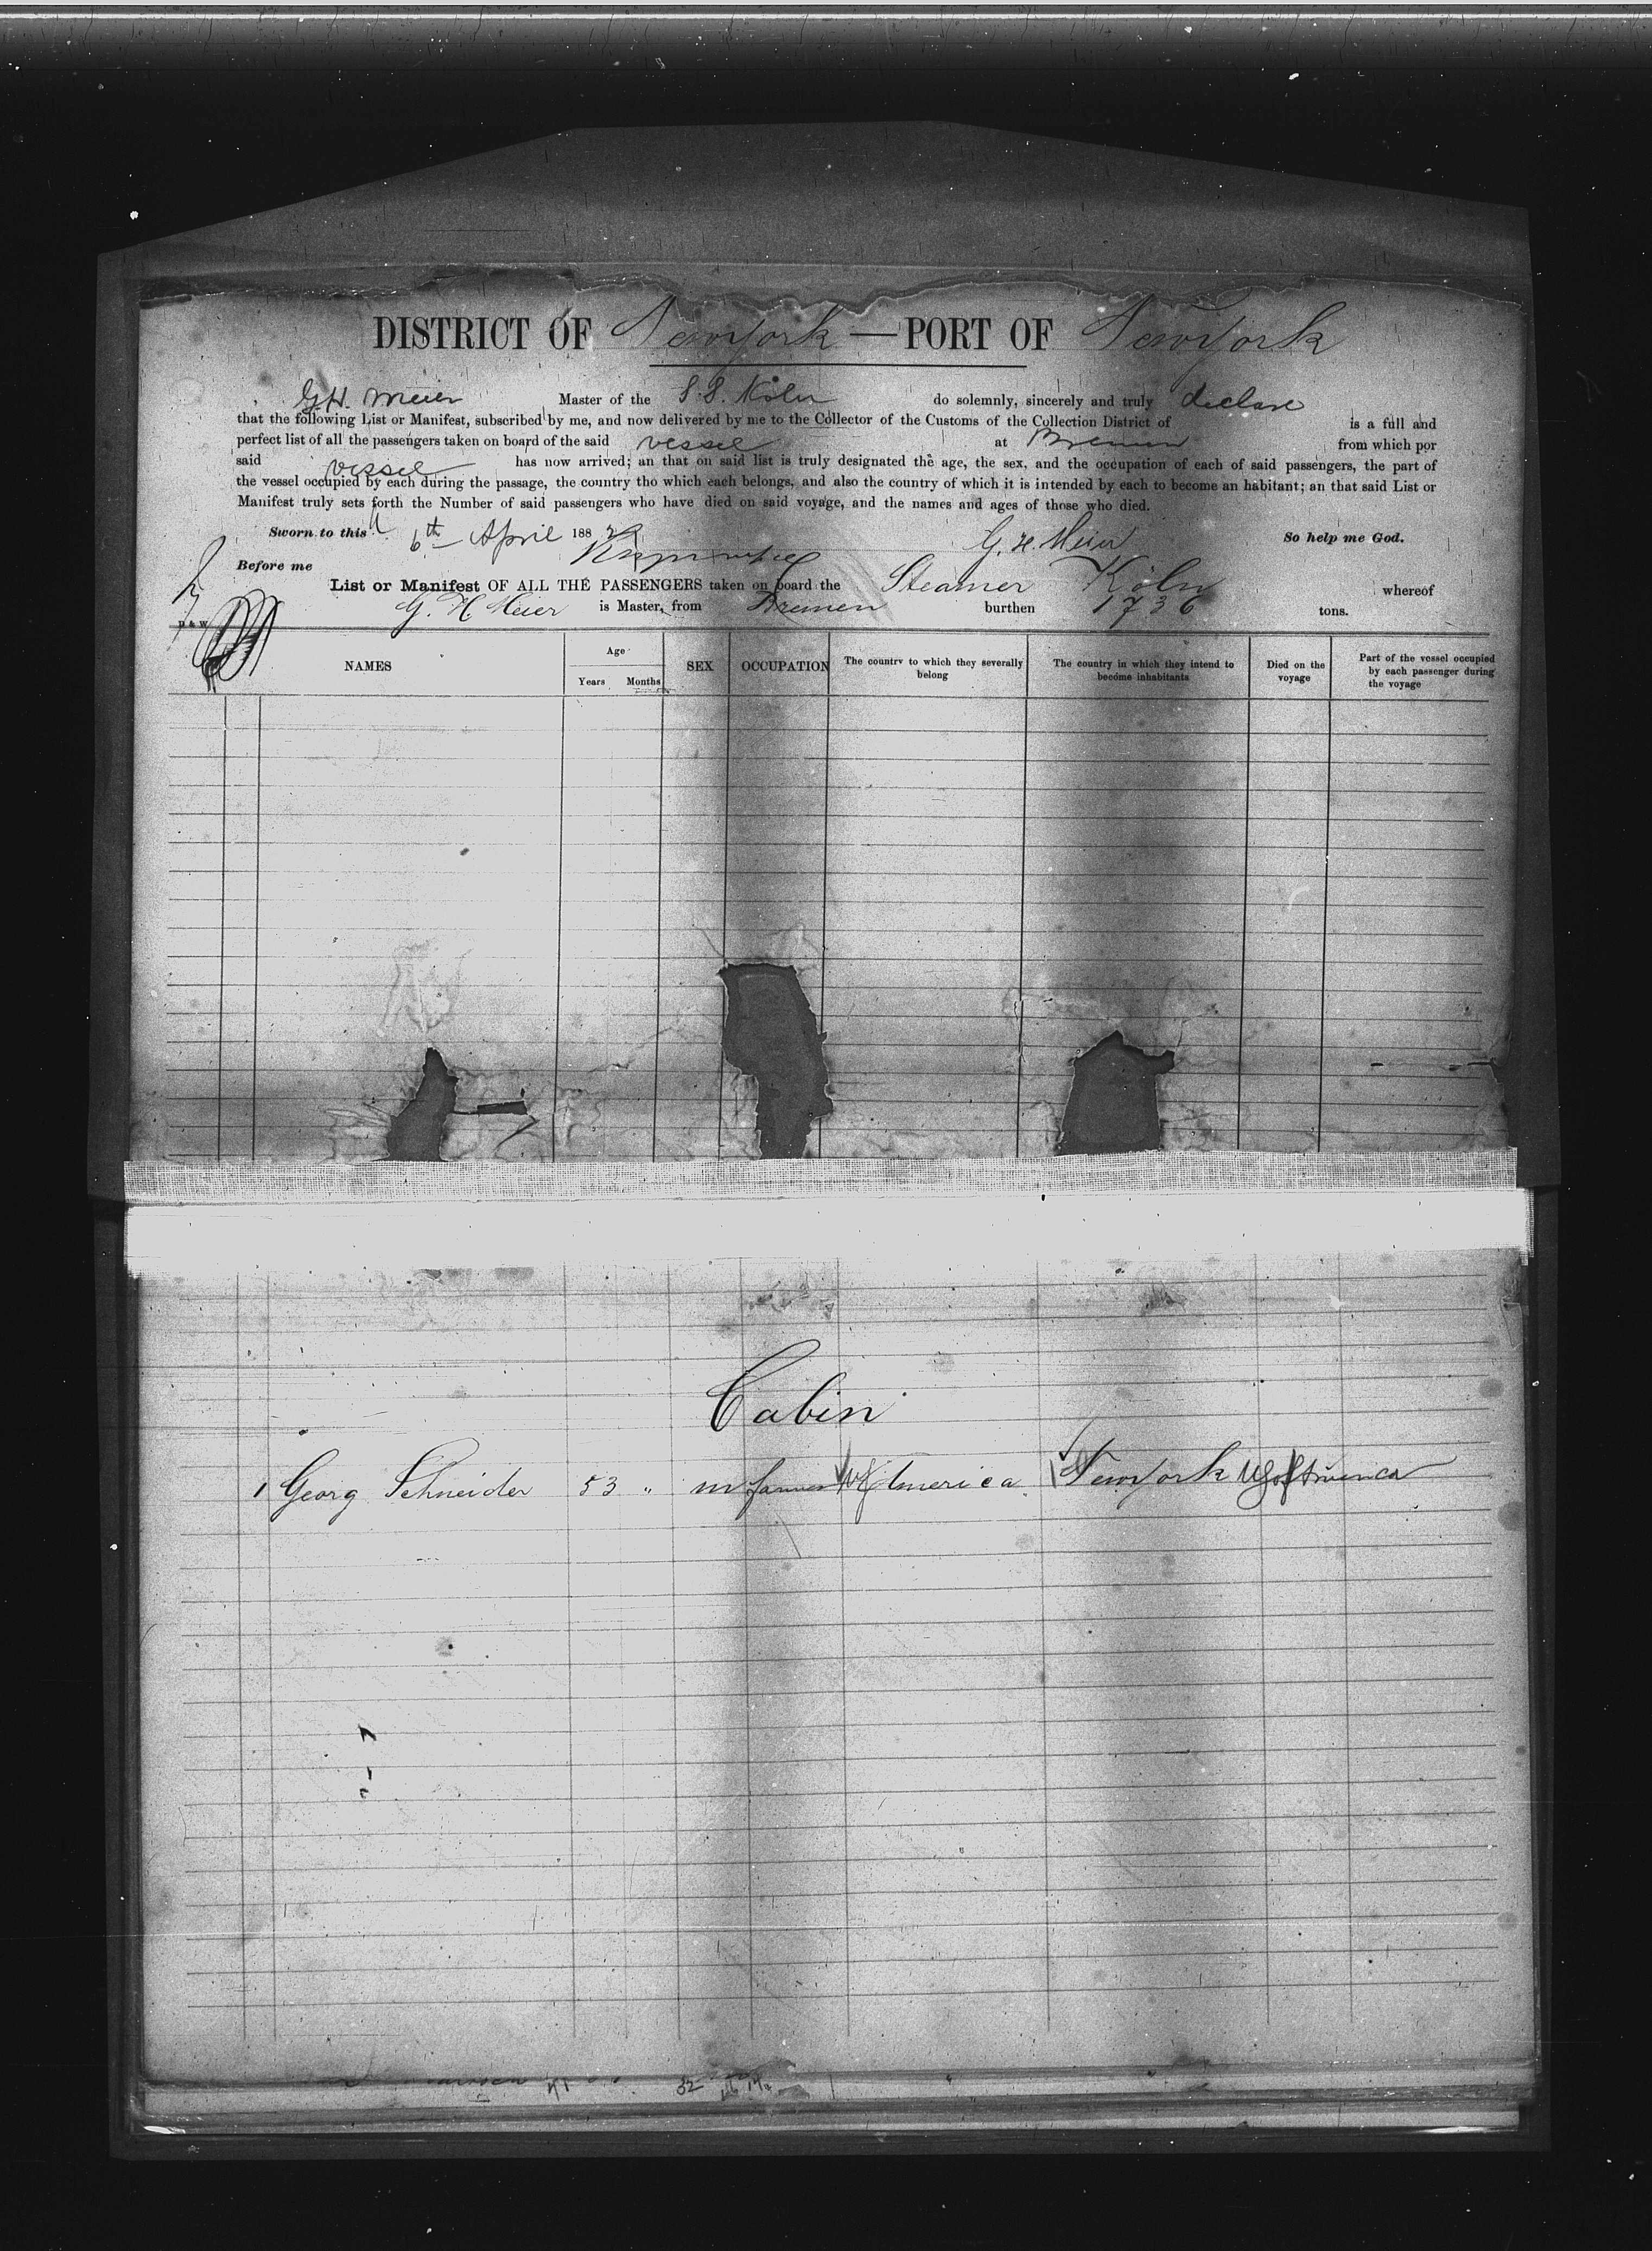 DISTRICT OF New York — PORT OF New York
G.H. Meier Master of the S.S. Köln do solemnly, sincerely and truly declare
that the following List or Manifest, subscribed by me, and now delivered by me to the Collector of the Customs of the Collection District of is a full and
perfect list of all the passengers taken on board of the said vessel at Bremen from which por
said vessel has now arrived; an that on said list is truly designated the age, the sex, and the occupation of each of said passengers, the part of
the vessel occupied by each during the passage, the country tho which each belongs, and also the country of which it is intended by each to become an habitant; an that said List or
Manifest truly sets forth the Number of said passengers who have died on said voyage, and the names and ages of those who died.
Sworn to this 6th April 188 G. H. Meier So help me God.
Before me
List or Manifest OF ALL THE PASSENGERS taken on board the Steamer Köln whereof
G. H. Meier is Master, from Bremen burthen 1736 tons.
NAMES Age Years Months SEX OCCUPATION The country to which they severally belong The country in which they intend to become inhabitants Died on the voyage Part of the vessel occupied by each passenger during the voyage
Cabin
1 Georg Schneider 53 " m farmer America New York US of America
32